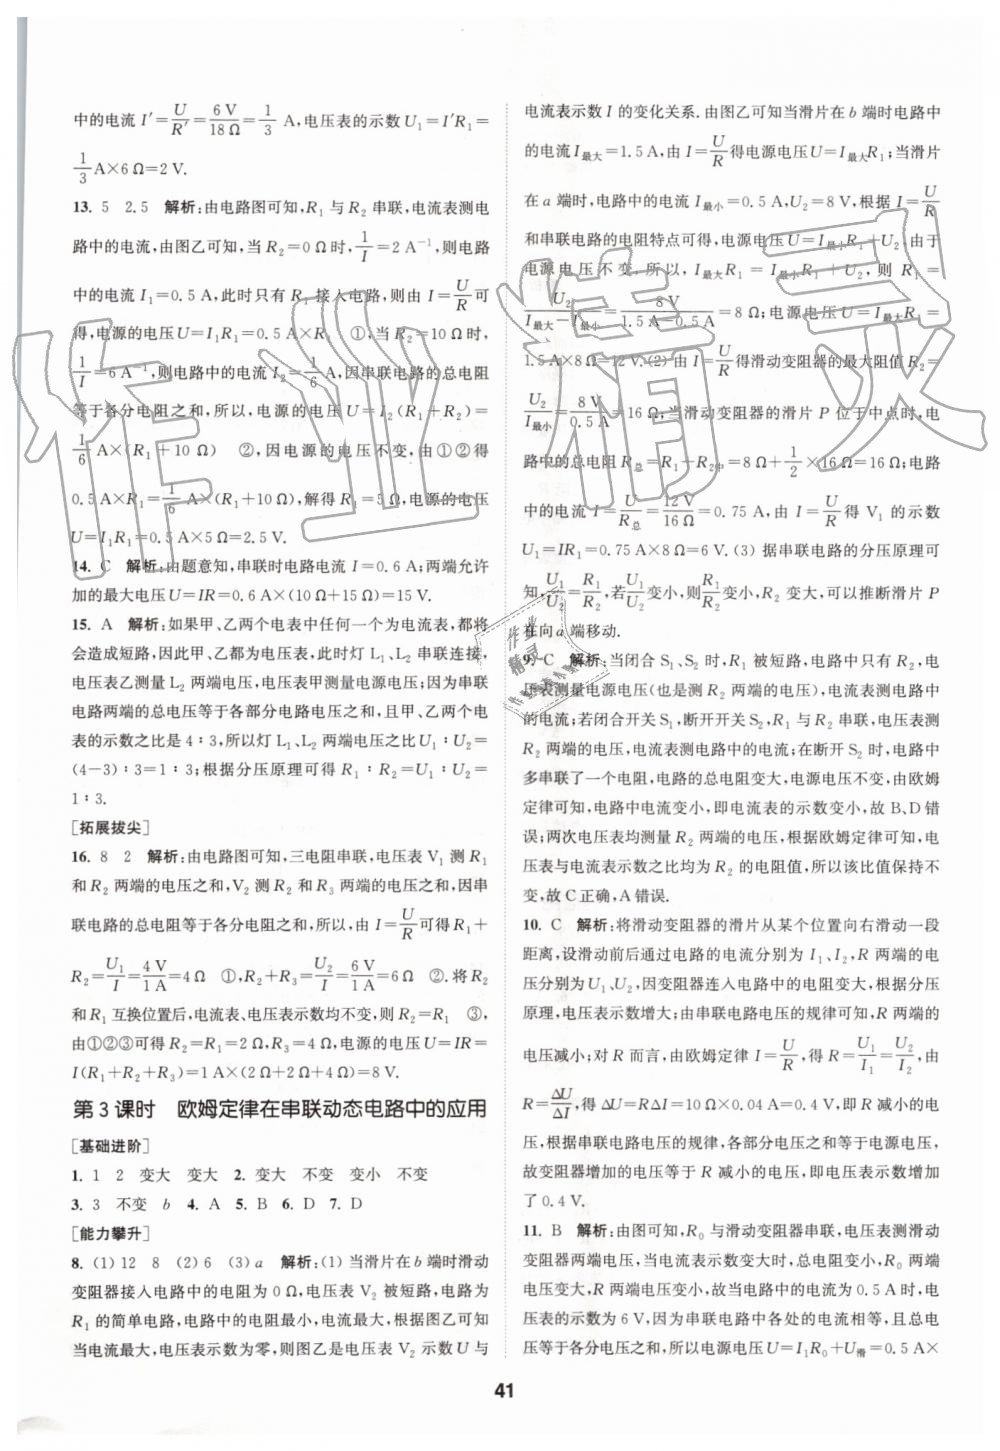 中的电流 I′=U/R′=6 V/18 Ω=1/3 A,电压表的示数 U₁=I′R₁=
1/3 A×6 Ω=2 V.
13. 5 2.5 解析:由电路图可知,R₁ 与 R₂ 串联,电流表测电
路中的电流,由图乙可知,当 R₂=0 Ω 时,1/I=2 A⁻¹,则电路
中的电流 I₁=0.5 A,此时只有 R₁ 接入电路,则由 I=U/R 可
得,电源的电压 U=I₁R₁=0.5 A×R₁ ①,当 R₂=10 Ω 时,
1/I=6 A⁻¹,则电路中的电流 I₂=1/6 A,因串联电路的总电阻
等于各分电阻之和,所以,电源的电压 U=I₂(R₁+R₂)=
1/6 A×(R₁+10 Ω) ②,因电源的电压不变,由①②得
0.5 A×R₁=1/6 A×(R₁+10 Ω),解得 R₁=5 Ω,电源的电压
U=I₁R₁=0.5 A×5 Ω=2.5 V.
14. C 解析:由题意知,串联时电路电流 I=0.6 A;两端允许
加的最大电压 U=IR=0.6 A×(10 Ω+15 Ω)=15 V.
15. A 解析:如果甲、乙两个电表中任何一个为电流表,都将
会造成短路,因此甲、乙都为电压表,此时灯 L₁、L₂ 串联连接,
电压表乙测量 L₂ 两端电压,电压表甲测量电源电压;因为串联
电路两端的总电压等于各部分电路电压之和,且甲、乙两个电
表的示数之比是 4∶3,所以灯 L₁、L₂ 两端电压之比 U₁∶U₂=
(4−3)∶3=1∶3;根据分压原理可得 R₁∶R₂=U₁∶U₂=
1∶3.
[拓展拔尖]
16. 8 2 解析:由电路图可知,三电阻串联,电压表 V₁ 测 R₁
和 R₂ 两端的电压之和,V₂ 测 R₂ 和 R₃ 两端的电压之和,因串
联电路的总电阻等于各分电阻之和,所以,由 I=U/R 可得 R₁+
R₂=U₁/I=4 V/1 A=4 Ω ①,R₂+R₃=U₂/I=6 V/1 A=6 Ω ②.将 R₂
和 R₁ 互换位置后,电流表、电压表示数均不变,则 R₂=R₁ ③,
由①②③可得 R₁=R₂=2 Ω,R₃=4 Ω,电源的电压 U=IR=
I(R₁+R₂+R₃)=1 A×(2 Ω+2 Ω+4 Ω)=8 V.
第 3 课时 欧姆定律在串联动态电路中的应用
[基础进阶]
1. 1 2 变大 变大 2. 变大 不变 变小 不变
3. 3 不变 b 4. A 5. B 6. D 7. D
[能力攀升]
8. (1) 12 8 (2) 6 (3) a 解析:(1) 当滑片在 b 端时滑动
变阻器接入电路中的电阻为 0 Ω,电压表 V₂ 被短路,电路为
R₁ 的简单电路,电路中的电阻最小,电流最大,根据图乙可知
当电流最大时,电压表示数为零,则图乙是电压表 V₂ 示数 U 与
电流表示数 I 的变化关系.由图乙可知当滑片在 b 端时电路中
的电流 I最大=1.5 A,由 I=U/R 得电源电压 U=I最大R₁;当滑片
在 a 端时,电路中的电流 I最小=0.5 A,U₂=8 V,根据 I=U/R
和串联电路的电阻特点可得,电源电压 U=I最小R₁+U₂.由于
电源电压不变,所以,I最大R₁=I最小R₁+U₂,则 R₁=
U₂/(I最大−I最小)=8 V/(1.5 A−0.5 A)=8 Ω;电源电压 U=I最大R₁=
1.5 A×8 Ω=12 V.(2) 由 I=U/R 得滑动变阻器的最大阻值 R₂=
U₂/I最小=8 V/0.5 A=16 Ω,当滑动变阻器的滑片 P 位于中点时,电
路中的总电阻 R总=R₁+R₂中=8 Ω+1/2×16 Ω=16 Ω;电路
中的电流 I=U/R总=12 V/16 Ω=0.75 A,由 I=U/R 得 V₁ 的示数
U₁=IR₁=0.75 A×8 Ω=6 V.(3) 据串联电路的分压原理可
知,U₁/U₂=R₁/R₂,若U₁/U₂变小,则R₁/R₂变小,R₂ 变大,可以推断滑片 P
在向 a 端移动.
9. C 解析:当闭合 S₁、S₂ 时,R₁ 被短路,电路中只有 R₂,电
压表测量电源电压(也是测 R₂ 两端的电压),电流表测电路中
的电流;若闭合开关 S₁,断开开关 S₂,R₁ 与 R₂ 串联,电压表测
R₂ 两端的电压,电流表测电路中的电流;在断开 S₂ 时,电路中
多串联了一个电阻,电路的总电阻变大,电源电压不变,由欧姆
定律可知,电路中电流变小,即电流表的示数变小,故 B、D 错
误;两次电压表均测量 R₂ 两端的电压,根据欧姆定律可知,电
压表与电流表示数之比均为 R₂ 的电阻值,所以该比值保持不
变,故 C 正确,A 错误.
10. C 解析:将滑动变阻器的滑片从某个位置向右滑动一段
距离,设滑动前后通过电路的电流分别为 I₁、I₂,R 两端的电
压分别为 U₁、U₂,因变阻器连入电路中的电阻变大,根据分压
原理,电压表示数增大;由串联电路电压的规律可知,R 两端的
电压减小;对 R 而言,由欧姆定律 I=U/R,得 R=U₁/I₁=U₂/I₂,由
R=ΔU/ΔI,得 ΔU=RΔI=10 Ω×0.04 A=0.4 V,即 R 减小的电
压,根据串联电路电压的规律,各部分电压之和等于电源电压,
故变阻器增加的电压等于 R 减小的电压,即电压表示数增加
了 0.4 V.
11. B 解析:由图可知,R₀ 与滑动变阻器串联,电压表测滑动
变阻器两端电压,当电流表示数变大时,总电阻变小,R₀ 两端
电压变大,R 两端电压变小,故当电路中的电流为 0.5 A 时,电
压表的示数为 6 V,因为串联电路中各处的电流相等,且总电
压等于各分电压之和,所以,电源电压 U=I₁R₀+U滑=0.5 A×
41
作业精灵
作业
精灵